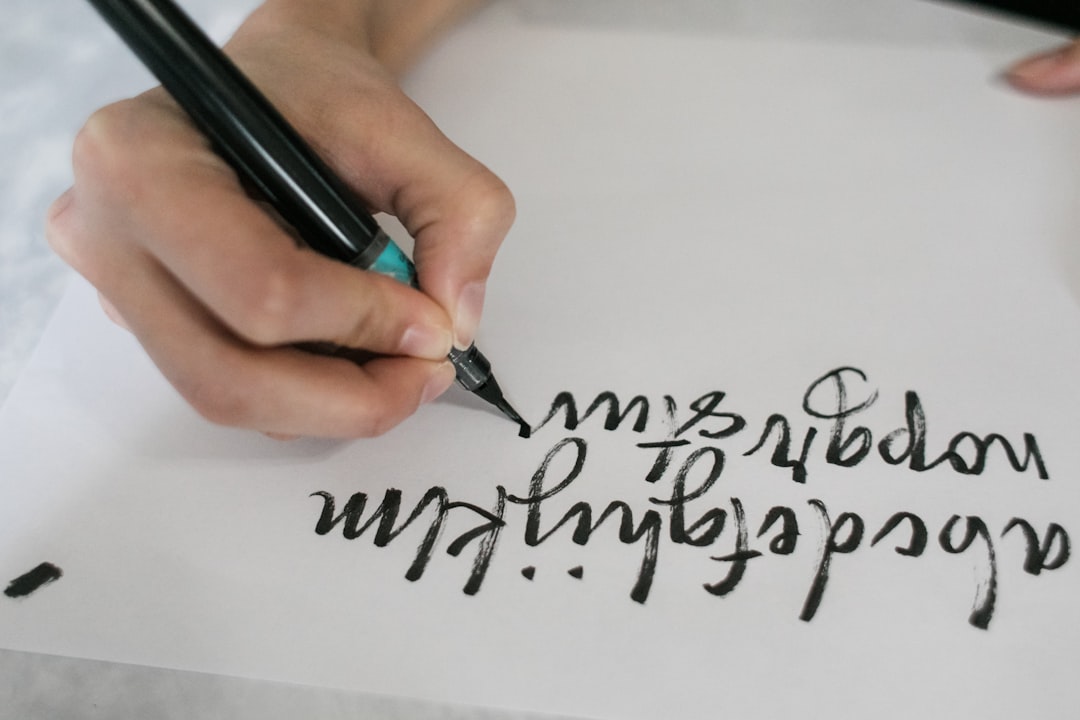 abcdefghijklm
nopqrstuv